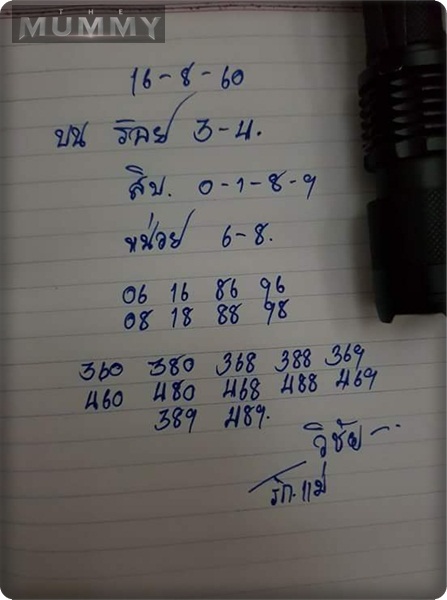 THE
MUMMY
16-8-60
บน ร้อย 3-4.
สิบ. 0-1-8-9
หน่วย 6-8.
06 16 86 96
08 18 88 98
360 380 368 388 369
460 480 468 488 469
389 489.
วิชัย
รักแม่